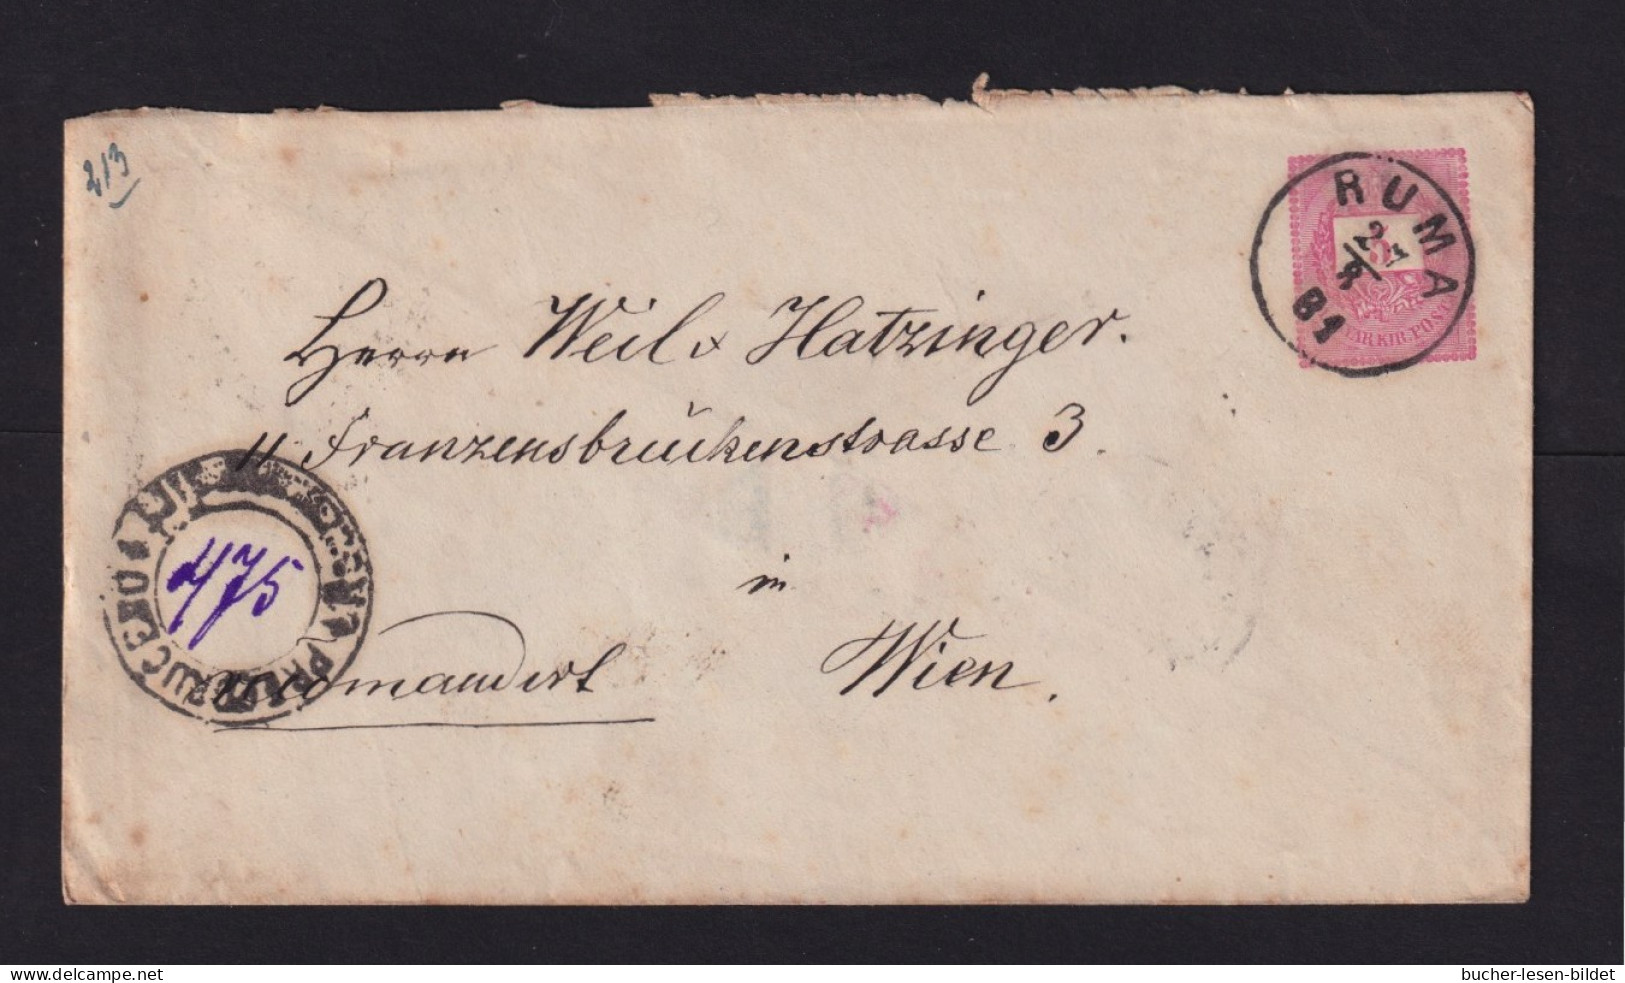 2/3
RUMA
2/3
81
5
MAGYAR KIR. POSTA
Herrn Weil & Hatzinger.
II Franzensbrückenstrasse 3.
475
in
Wien.
delcampe.net
bucher-lesen-bildet